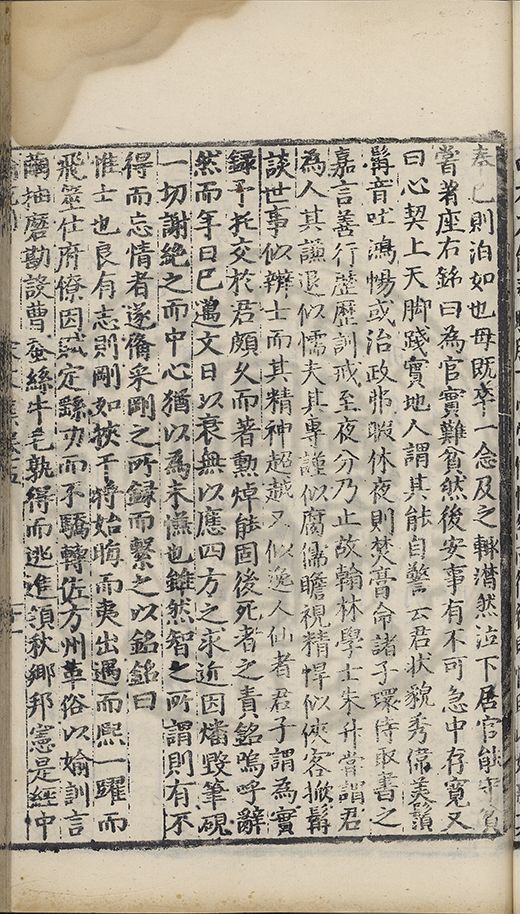 奉己則泊如也母既卒一念及之輙潸然泣下居官能守貧
嘗著座右銘曰為官實難貧然後安事有不可急中存寬又
曰心契上天脚踐實地人謂其能自警云君狀貌秀偉美鬚
髯音吐鴻暢或治政弗暇休夜則焚膏命諸子環侍取書之
嘉言善行歴歴訓戒至夜分乃止故翰林學士朱升嘗謂君
為人其謙退似懦夫其專謹似腐儒瞻視精悍似俠客掀髯
談世事似辯士而其精神超越又似逸人仙者君子謂為實
錄予托交於君頗久而著勲焯能固後死者之責銘嗚呼辭
然而年日巳邁文日以衰無以應四方之求近因燔毀筆硯
一切謝絶之而中心猶以為未慊也雖然智之所謂則有不
得而忘情者遂備采剛之所録而繫之以銘銘曰
惟士也良有志則剛如挾干將始晦而夷出遇而熙一躍而
飛筮仕府僚因賦定繇功而不驕轉佐方州革俗以婾訓言
繭抽磨勘談曹蚕絲牛毛孰得而逃進領秋卿邦憲是經中